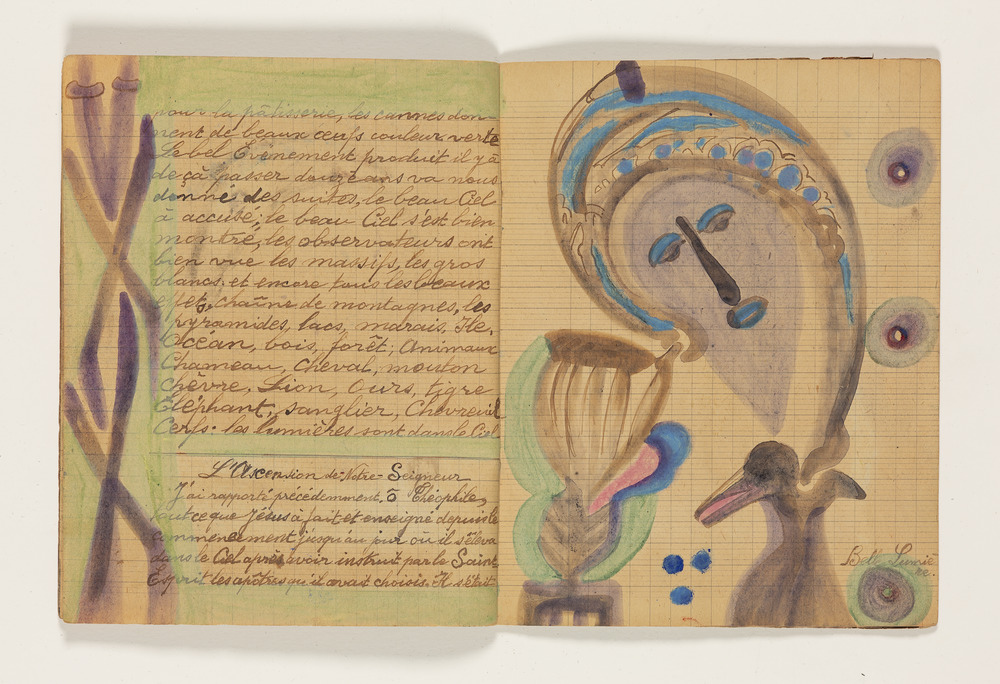 pour la pâtisserie, les cannes don-
nent de beaux œufs couleur verte
Le bel Evènement produit il y à
de çà passer douze ans va nous
donné des suites, le beau Ciel
à accusé; le beau Ciel s'est bien
montré, les observateurs ont
bien vue les massifs, les gros
blancs et encore tous les beaux
effet, chaîne de montagnes, les
pyramides, lacs, marais, Ile,
Océan, bois, forêt; Animaux
Chameau, cheval, mouton
chèvre, Lion, Ours, tigre
Eléphant, sanglier, Chevreuil
Cerfs. les lumières sont dans le Ciel
L'Ascension de Notre-Seigneur
J'ai rapporté précédemment, ô Théophile,
tout ce que Jésus à fait et enseigné depuis le
commencement jusqu'au jour où il s'éleva
dans le Ciel après avoir instruit par le Saint
Esprit les apôtres qu'il avait choisis. Il s'était
Belle Lumiè
re.